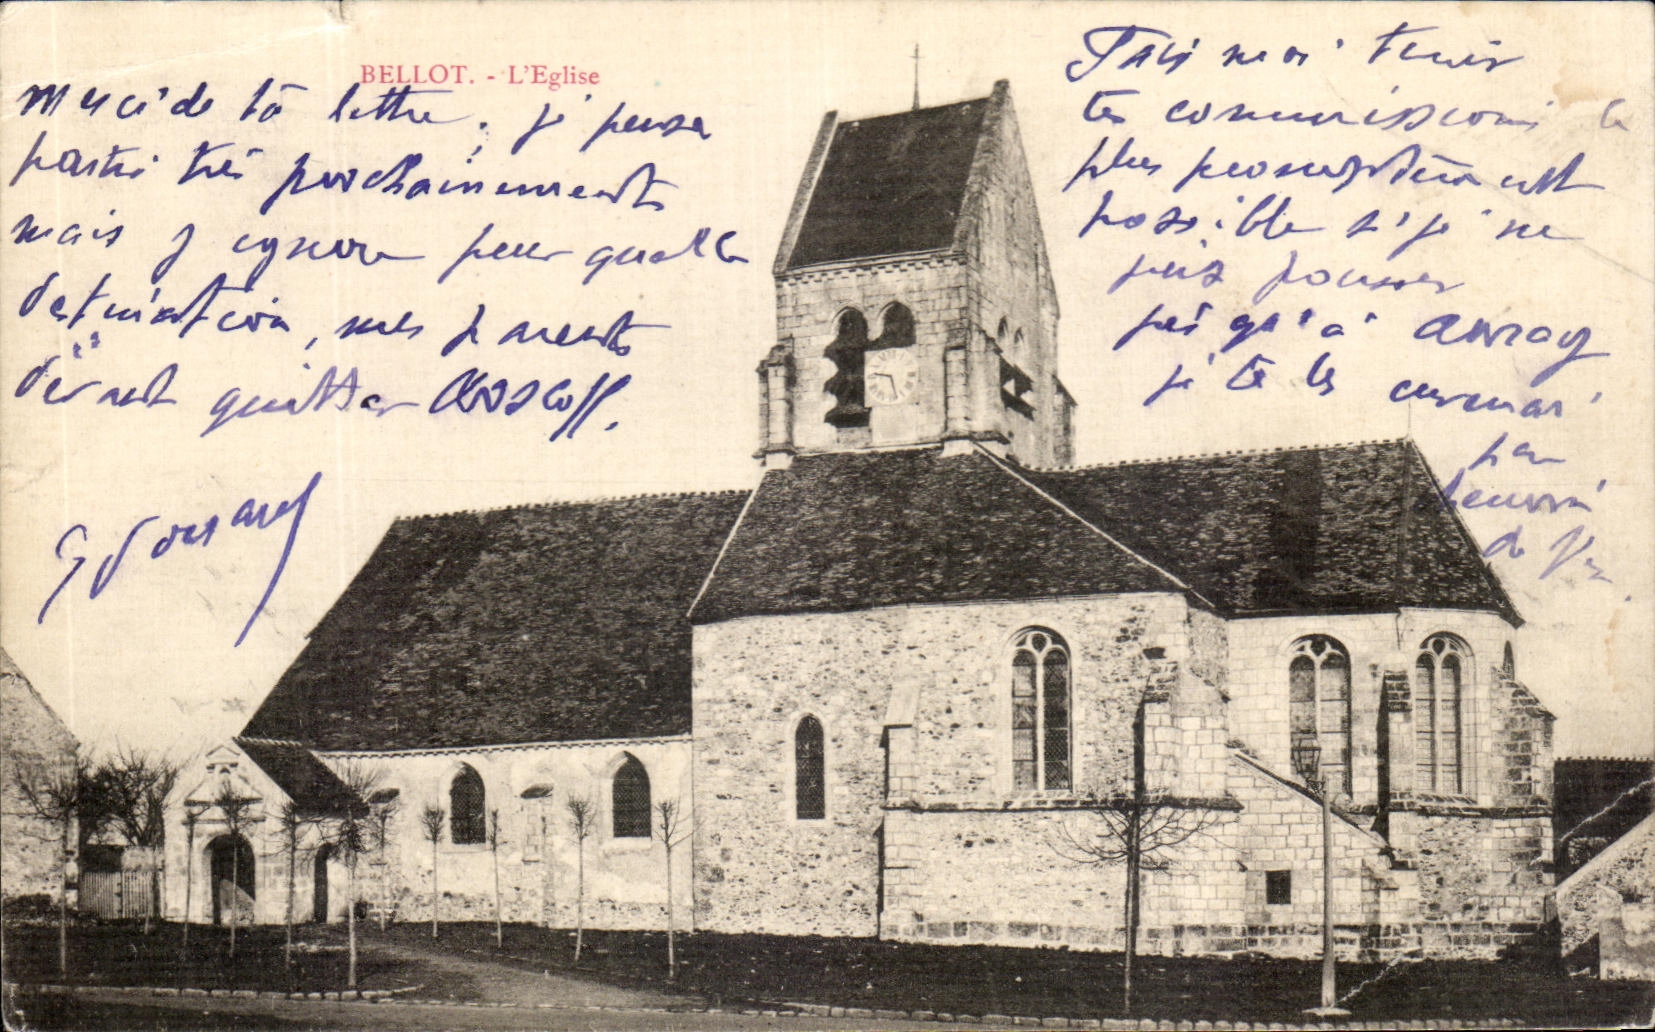 BELLOT. - L'Eglise
Merci de ta lettre, je pense
partir très prochainement
mais j ignore pour quelle
destination, mes parents
désirent quitter Roscoff.
Fais moi tenir
tes commissions le
plus promptement
possible si je ne
puis pousser
jusqu'à Auray
je te les enverrai
par
de